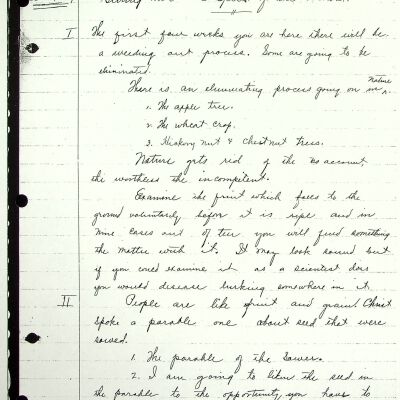 I The first four weeks you are here there will be
a weeding out process. Some are going to be
eliminated.
There is an eliminating process going on in Nature.
1. The apple tree.
2. The wheat crop.
3. Hickory nut & chestnut trees.
Nature gets rid of the no account
the worthless the incompetent.
Examine the fruit which falls to the
ground voluntarily before it is ripe and in
nine cases out of ten you will find something
the matter with it. It may look sound but
if you could examine it as a scientist does
you would disease lurking somewhere in it.
II People are like fruit and grain Christ
spoke a parable one about seed that were
sowed.
1. The parable of the Sower.
2. I am going to liken the seed in
the parable to the opportunity you have to